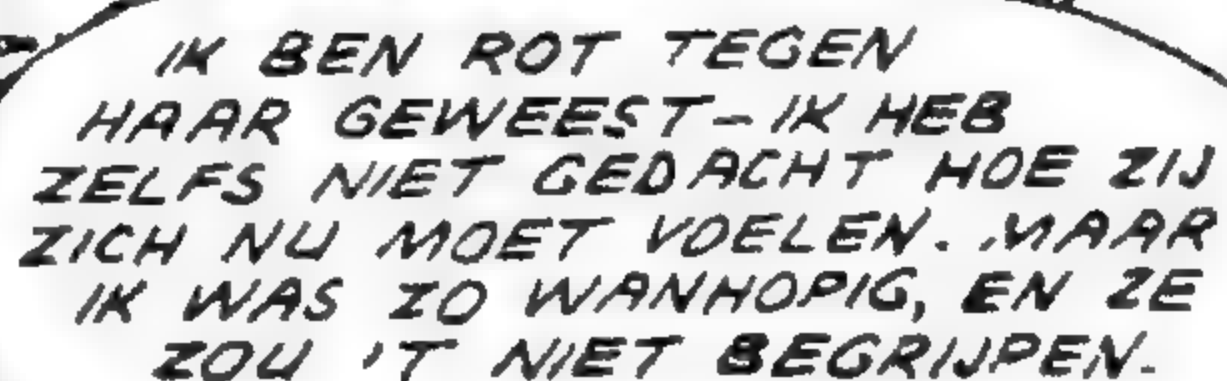 IK BEN ROT TEGEN
HAAR GEWEEST - IK HEB
ZELFS NIET GEDACHT HOE ZIJ
ZICH NU MOET VOELEN. MAAR
IK WAS ZO WANHOPIG, EN ZE
ZOU 'T NIET BEGRIJPEN.